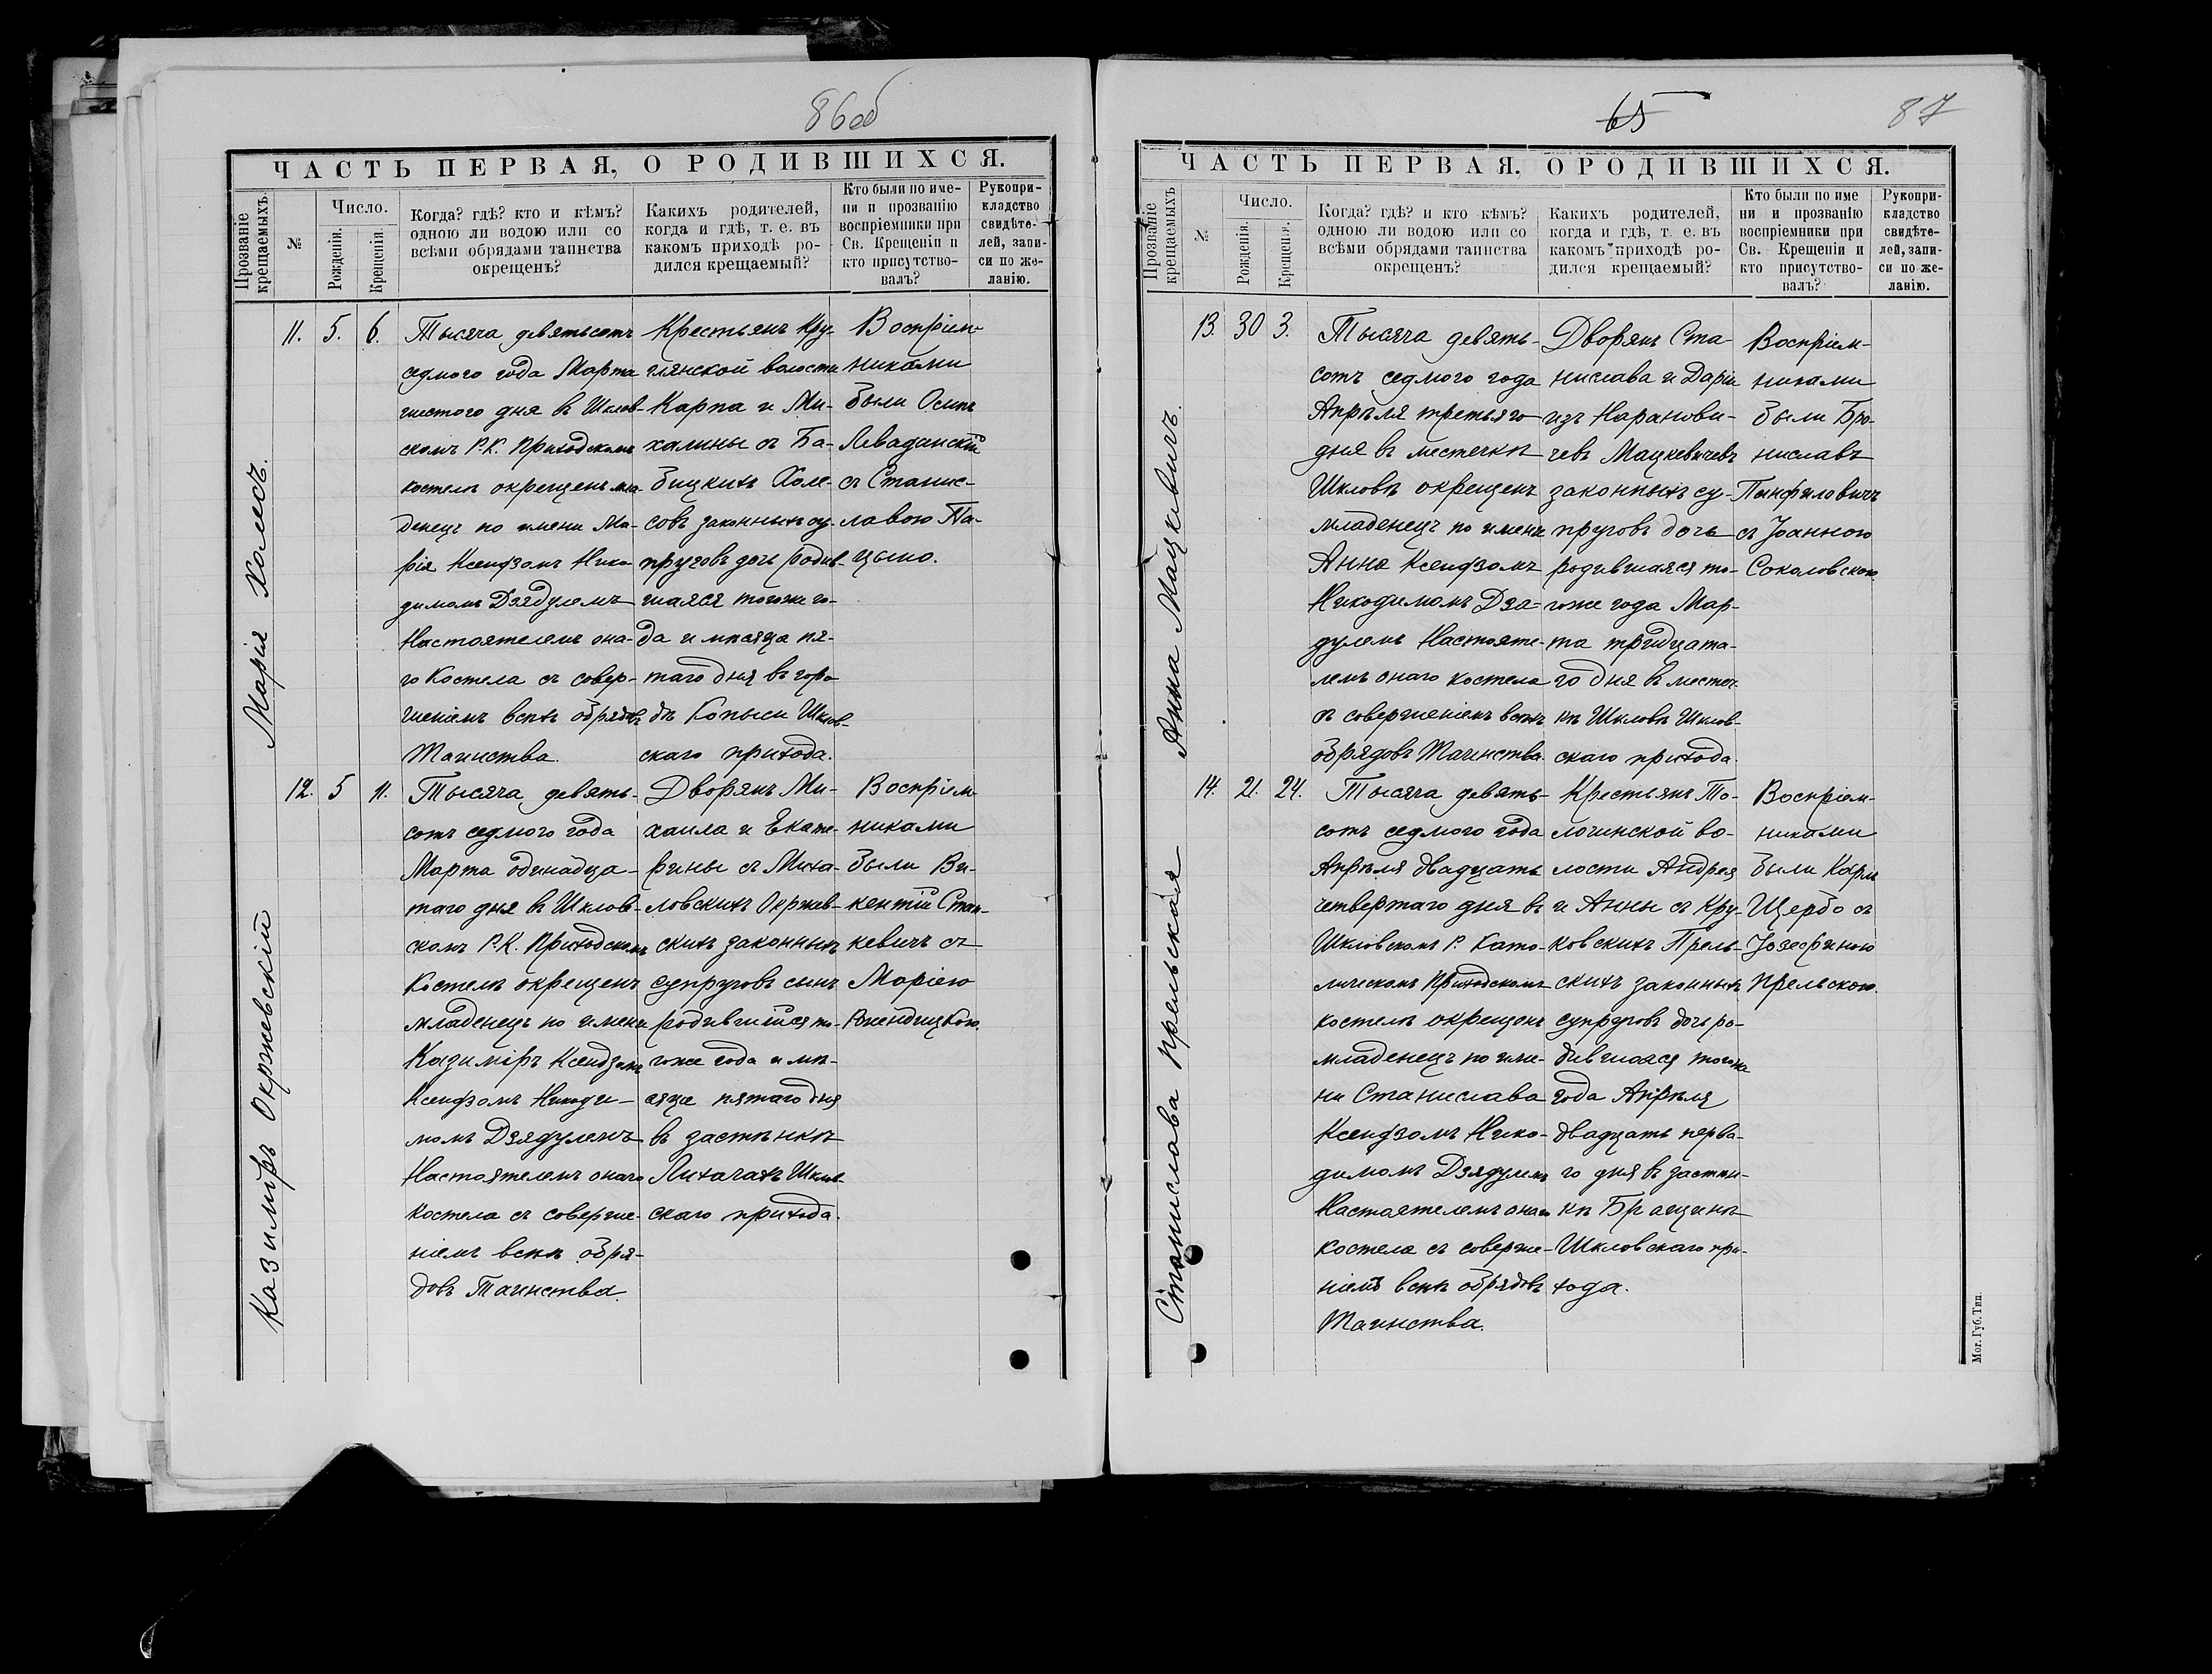 86об
ЧАСТЬ ПЕРВАЯ, О РОДИВШИХСЯ.
Прозваніе крещаемыхъ.
№
Число.
Рожденія.
Крещенія.
Когда? гдѣ? кто и кѣмъ?
одною ли водою или со
всѣми обрядами таинства
окрещенъ?
Какихъ родителей,
когда и гдѣ, т. е. въ
какомъ приходѣ ро-
дился крещаемый?
Кто были по име-
ни и прозванію
воспріемники при
Св. Крещеніи и
кто присутство-
валъ?
Рукопри-
кладство
свидѣте-
лей, запи-
си по же-
ланію.
Марія Холесъ.
11. 5. 6.
Тысяча девятьсотъ
седмого года Марта
шестого дня въ Шклов-
скомъ Р.К. Приходскомъ
костелѣ окрещенъ мла-
денецъ по имени Ма-
рія Ксендзомъ Нико-
димомъ Дзядулемъ
Настоятелемъ она-
го Костела съ совер-
шеніемъ всѣхъ обрядовъ
Таинства.
Крестьянъ Кру-
глянской волости
Карпа и Ми-
халины съ Ба-
бицкихъ Холе-
совъ законныхъ су-
пруговъ дочь родив-
шаяся тогоже го-
да и мѣсяца пя-
таго дня въ горо-
дѣ Копыси Шклов-
скаго прихода.
Воспріем-
никами
были Осипъ
Левадинскій
съ Станис-
лавою Па-
цыно.
Казиміръ Окржевскій
12. 5 11.
Тысяча девять-
сотъ седмого года
Марта одинадца-
таго дня въ Шклов-
скомъ Р.К. Приходскомъ
Костелѣ окрещенъ
младенецъ по имени
Казиміръ Ксендзомъ
Ксендзомъ Никоди-
момъ Дзядулемъ
Настоятелемъ онаго
Костела съ соверше-
ніемъ всѣхъ обря-
довъ Таинства.
Дворянъ Ми-
хаила и Екате-
рины съ Миха-
ловскихъ Окржев-
скихъ законныхъ
супруговъ сынъ
родившійся то-
гоже года и мѣ-
сяца пятаго дня
въ застѣнкѣ
Лихачахъ Шклов-
скаго прихода.
Воспріем-
никами
были Ви-
кентій Стан-
кевичъ съ
Маріею
65
87
ЧАСТЬ ПЕРВАЯ, О РОДИВШИХСЯ.
Прозваніе крещаемыхъ
№
Число.
Рожденія.
Крещенія.
Когда? гдѣ? и кто кѣмъ?
одною ли водою или со
всѣми обрядами таинства
окрещенъ?
Какихъ родителей,
когда и гдѣ, т. е. въ
какомъ приходѣ ро-
дился крещаемый?
Кто были по име
ни и прозванію
воспріемники при
Св. Крещеніи и
кто присутство-
валъ?
Рукопри-
кладство
свидѣте-
лей, запи-
си по же-
ланію.
Анна Мацкевичъ.
13. 30 3.
Тысяча девять-
сотъ седмого года
Апрѣля третьяго
дня въ местечкѣ
Шкловѣ окрещенъ
младенецъ по имени
Анна Ксендзомъ
Никодимомъ Дзя-
дулемъ Настояте-
лемъ онаго костела
съ совершеніемъ всѣхъ
обрядовъ Таинства.
Дворянъ Ста-
нислава и Даріи
изъ Наранови-
чевъ Мацкевичевъ
законныхъ су-
пруговъ дочь
родившаяся то-
гоже года Мар-
та тридцата-
го дня въ местеч-
кѣ Шкловѣ Шклов-
скаго прихода.
Воспріем-
никами
были Бро-
ниславъ
Панфиловичъ
съ Іоанною
Соколовскою
Станислава Прельская
14. 21. 24.
Тысяча девять-
сотъ седмого года
Апрѣля двадцать
четвертаго дня въ
Шкловскомъ Р. Като-
лическомъ Приходскомъ
костелѣ окрещенъ
младенецъ по име-
ни Станислава
Ксендзомъ Нико-
димомъ Дзядулемъ
Настоятелемъ онаго
костела съ соверше-
ніемъ всѣхъ обрядовъ
Таинства.
Крестьянъ То-
лочинской во-
лости Андрея
и Анны съ Кру-
ковскихъ Прель-
скихъ законныхъ
супруговъ дочь ро-
дившаяся тогоже
года Апрѣля
двадцать перва-
го дня въ застѣн-
кѣ Бращинѣ
Шкловскаго при-
хода.
Воспріем-
никами
были Карлъ
Щербо съ
Іозефиною
Прельскою.
Мог. Губ. Тип.